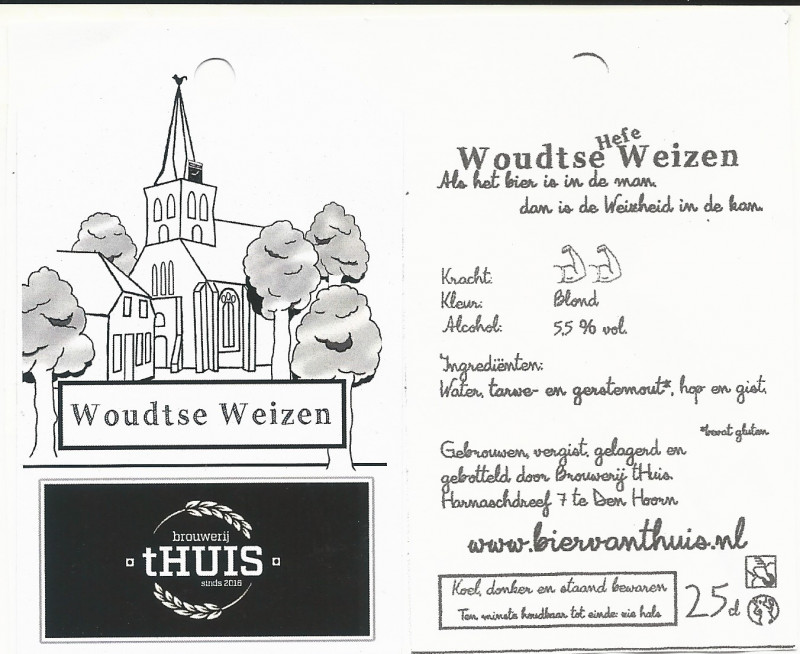 Woudtse Weizen
brouwerij
tHUIS
sinds 2016
Hefe
Woudtse Weizen
Als het bier is in de man,
dan is de Weizheid in de kan.
Kracht:
Kleur: Blond
Alcohol: 5,5 % vol.
Ingrediënten:
Water, tarwe- en gerstemout*, hop en gist.
*bevat gluten
Gebrouwen, vergist, gelagerd en
gebotteld door Brouwerij tHuis.
Harnaschdreef 7 te Den Hoorn
www.biervanthuis.nl
Koel, donker en staand bewaren
Ten minste houdbaar tot einde: zie hals
25cl